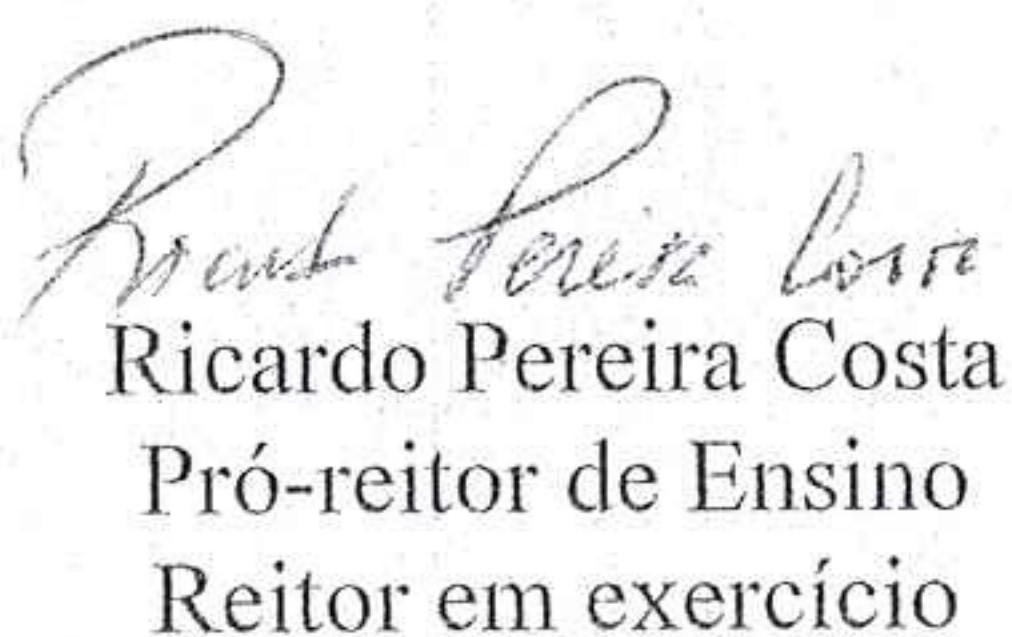 Ricardo Pereira Costa
Ricardo Pereira Costa
Pró-reitor de Ensino
Reitor em exercício